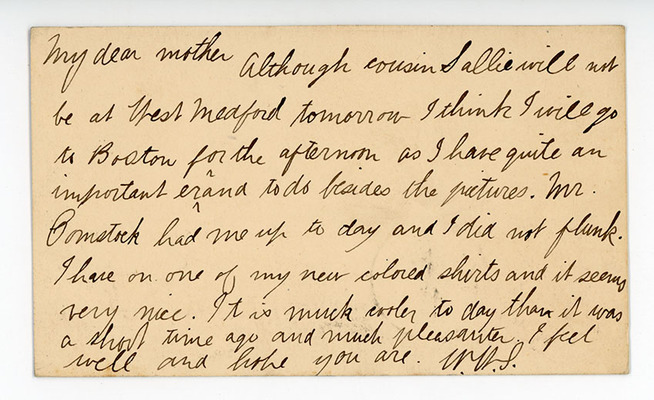 My dear mother Although cousin Sallie will not
be at West Medford tomorrow I think I will go
to Boston for the afternoon as I have quite an
important errand to do besides the pictures. Mr.
Comstock had me up to day and I did not flunk.
I have on one of my new colored shirts and it seems
very nice. It is much cooler to day than it was
a short time ago and much pleasanter. I feel
well and hope you are.